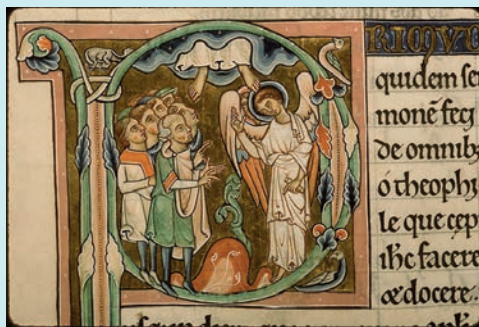 PRIMU
quidem ser
monē feci
de omnibꝫ
ó theophi
le que cepi
ihc facere
ædocere.